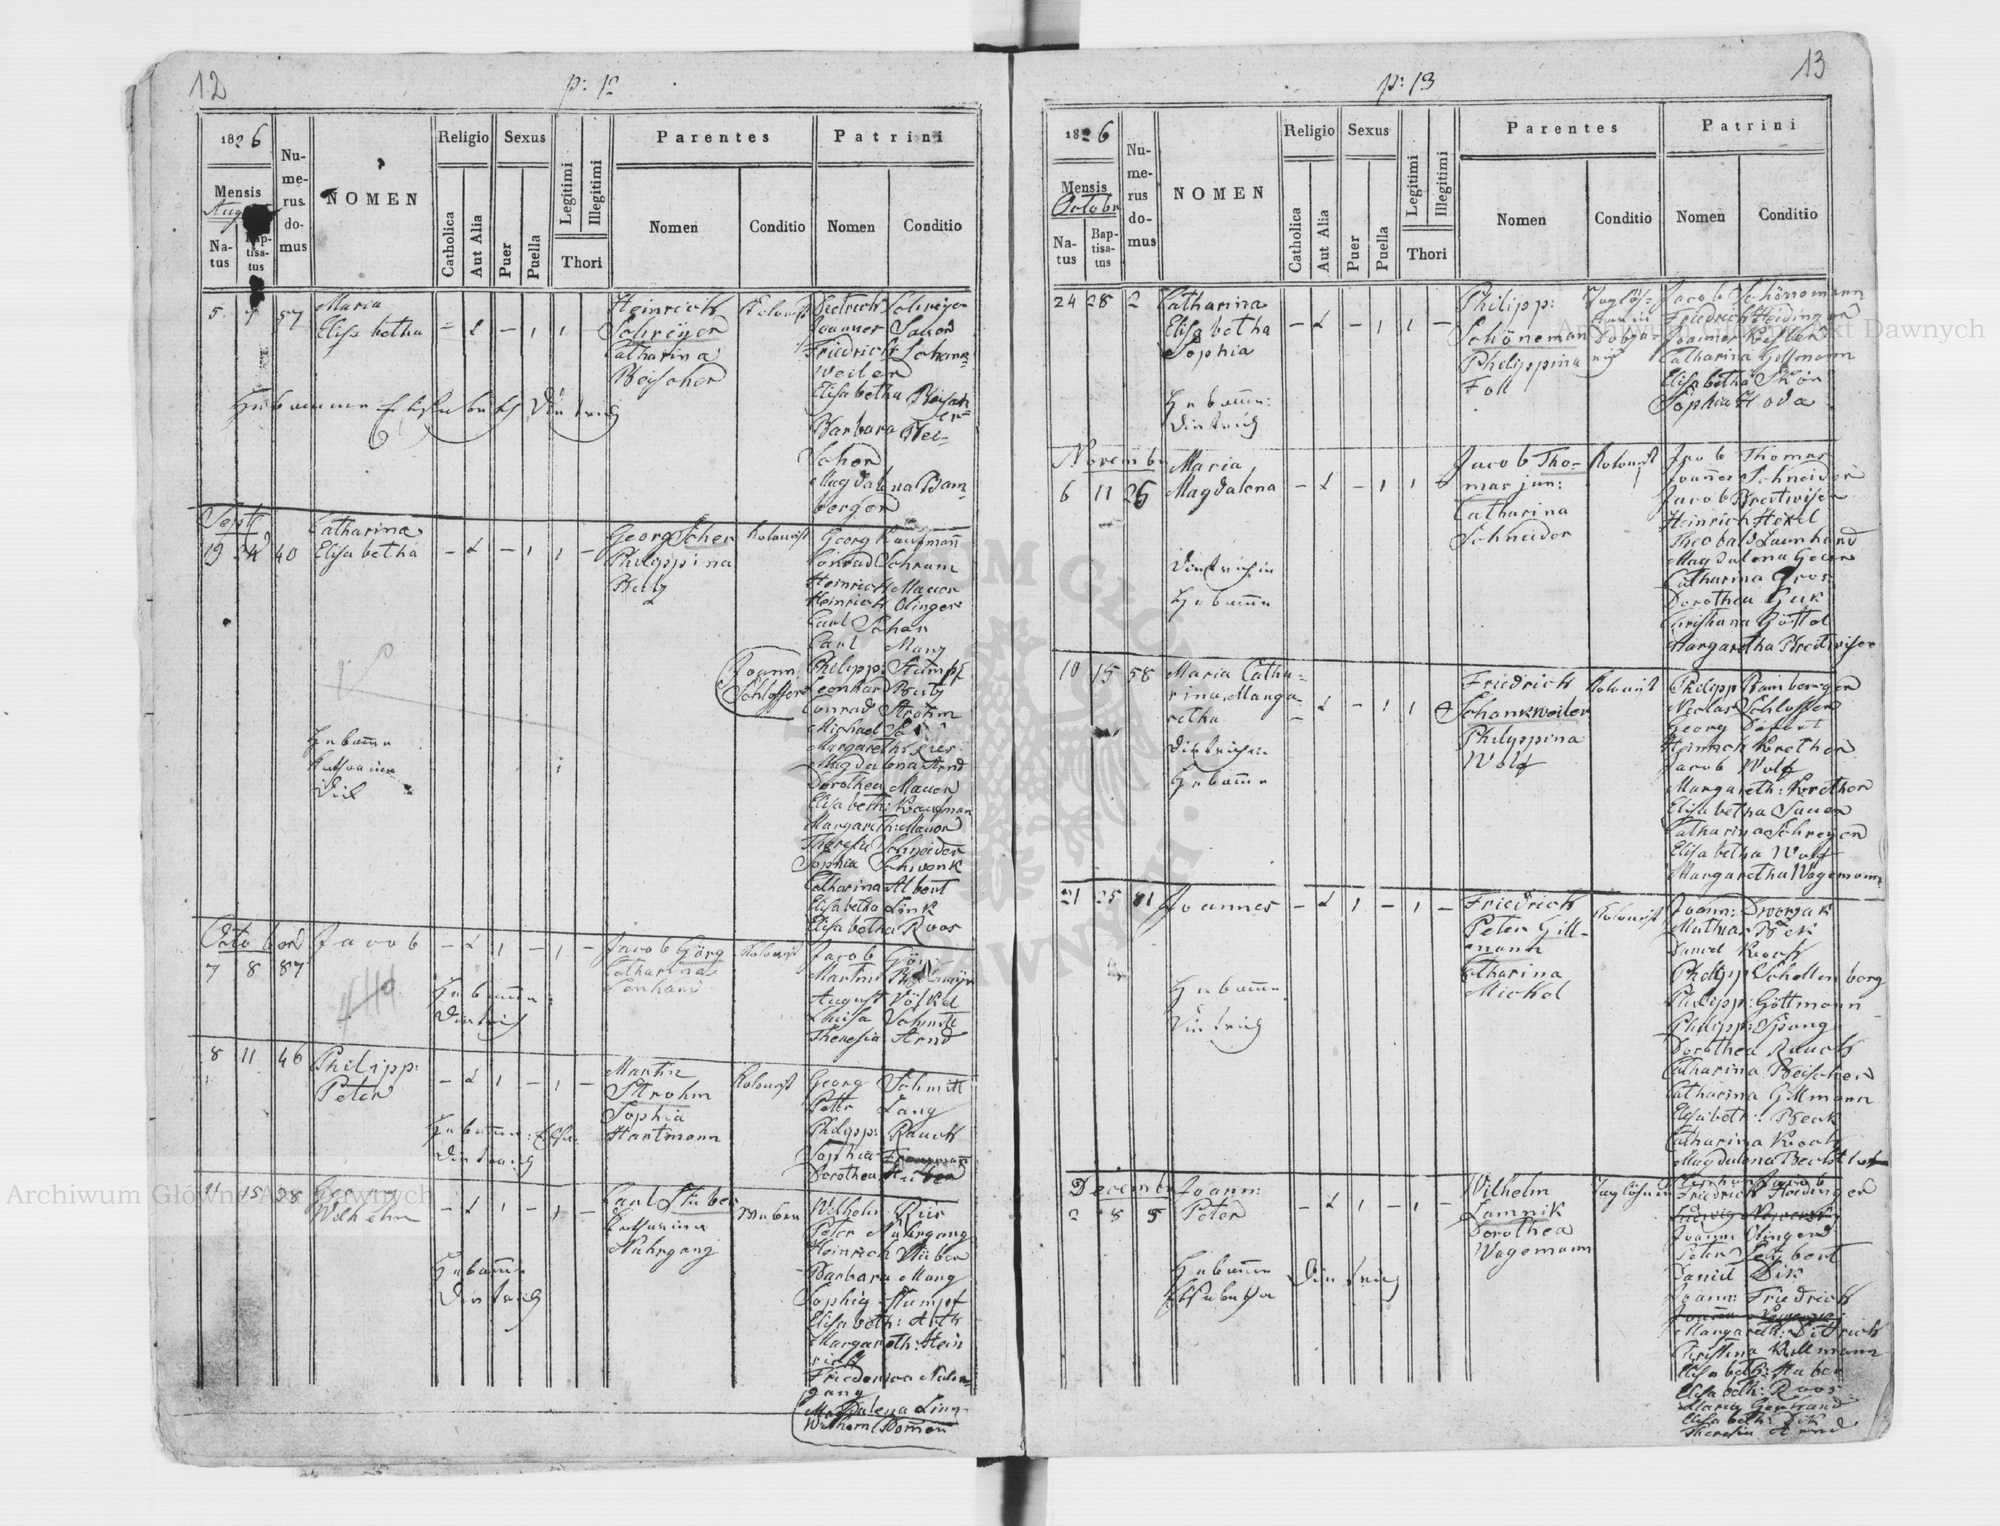 12
p: 12
1826
Mensis
Aug
Na-
tus
Bap-
tisa-
tus
Nu-
me-
rus
do-
mus
NOMEN
Religio
Catholica
Aut Alia
Sexus
Puer
Puella
Legitimi
Illegitimi
Thori
Parentes
Nomen
Conditio
Patrini
Nomen
Conditio
5 7 57
Maria
Elisabetha
Heinrich
Schreyer
Catharina
Beischer
Kolonist
Dietrich Schreyer
Joannes Sauer
Friedrich Schank-
weiler
Elisabetha Beisch
er
Barbara Bei-
scher
Magdalena Bam-
berger
Hebamme Elisabeth Dietrich
Sept
19 24 40
Catharina
Elisabetha
Georg Scher
Philippina
Betz
Kolonist
Georg Kaufmann
Conrad Schram
Heinrich Mauer
Heinrich Olinger
Carl Scher
Carl Manz
Joann
Schlosser
Philipp: Stumpf
Leonhard Betz
Conrad Strohm
Michael
Margaretha Ries
Magdalena Arnd
Dorothea Mauer
Elisabeth: Kaufman
Margareth: Mauer
Theresia Schneider
Sophia Schwenk
Catharina Albert
Elisabetha Link
Elisabetha Roos
Hebamme
Katharina
Dik
October
7 8 87
Jacob
Jacob Görg
Catharina
Lenhard
Kolonist
Jacob
Martin
August Völkel
Luisa Schmitt
Theresia Arnd
Hebamme:
Dietrich
8 11 46
Philipp:
Peter
Martin
Strohm
Sophia
Hartmann
Kolonist
Georg Schmitt
Peter Lang
Philipp: Rauch
Sophia
Dorothea Huber
Hebamme: Elis:
Dietrich
11 15 28
Georg
Wilhelm
Carl Stüber
Katharina
Nuhrgang
Weber
Wilhelm Ries
Peter Nuhrgang
Heinrich Stüber
Barbara Mang
Sophia Stumpf
Elisabeth:
Margareth: Hein
rich
Friederica Nuhr-
gang
Magdalena Ling
Wilhelm
Hebamme
Dietrich
13
p: 13
1826
Mensis
Octobr
Na-
tus
Bap-
tisa-
tus
Nu-
me-
rus
do-
mus
NOMEN
Religio
Catholica
Aut Alia
Sexus
Puer
Puella
Legitimi
Illegitimi
Thori
Parentes
Nomen
Conditio
Patrini
Nomen
Conditio
24 28 2
Catharina
Elisabetha
Sophia
Philipp:
Schöneman
Philippina
Foll
Taglöh-
Jacob Schönemann
Friedrich Heidinger
Joannes Kessler
Catharina Gillmann
Elisabetha Skör
Sophia Hoda
Hebamm:
Dietrich
November
6 11 26
Maria
Magdalena
Jacob Tho-
mas jun:
Catharina
Schneider
Kolonist
Jacob Thomas
Joannes Schneider
Jacob Breitwiser
Heinrich Hekel
Theobald Launhard
Magdalena Geier
Catharina Gros
Dorothea Guk
Christiana Göttel
Margaretha Breitwiser
Dietrichin
Hebamme
10 15 58
Maria Catha-
rina Marga
retha
Friedrich
Schankweiler
Philippina
Wolf
Kolonist
Philipp Bamberger
Nicolas Schlosser
Georg
Heinrich Krether
Jacob Wolf
Margareth: Krether
Elisabetha Sauer
Catharina Schreyer
Elisabetha Wolf
Margaretha Wagemann
Dietrichin
Hebamme
21 25 81
Joannes
Friedrich
Peter Gill-
mann
Catharina
Mickel
Kolonist
Joann: Dworzak
Mathias Bek
Daniel Koch
Philipp Schollenberg
Philipp: Göttmann
Philipp: Spang
Dorothea Rauch
Catharina Beischer
Catharina Gillmann
Elisabeth: Beck
Catharina Koch
Magdalena
Hebamme
Dietrich
December
2 8 5
Joann:
Peter
Wilhelm
Lamnik
Dorothea
Wagemann
Taglöhner
Friedrich Heidinger
Joann: Olinger
Peter Seybert
Daniel Dik
Joann: Friedrich
Margareth: Dittrich
Christina Kullmann
Elisabeth: Huber
Elisabeth: Roos
Maria Gertrand
Elisabeth: Dik
Theresia Arnd
Hebamme Dietrich
Elisabetha
Archiwum Główne Akt Dawnych
Archiwum Główne Akt Dawnych